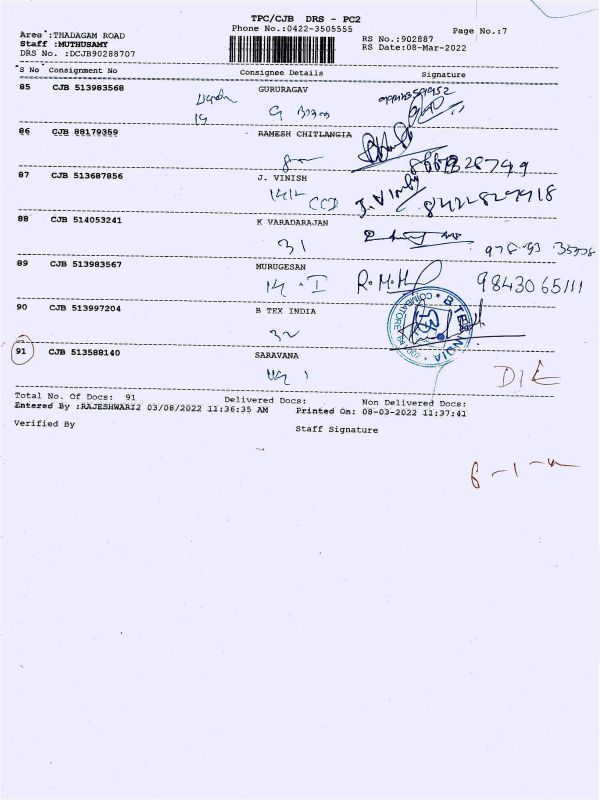 TPC/CJB DRS - PC2
Area :THADAGAM ROAD Phone No.:0422-3505555 Page No.:7
Staff :MUTHUSAMY RS No.:902887
DRS No. :DCJB90288707 RS Date:08-Mar-2022
S No Consignment No Consignee Details Signature
85 CJB 513983568 GURURAGAV
14
86 CJB 88179359 RAMESH CHITLANGIA
87 CJB 513687856 J. VINISH
1412 CCD J. Vinish
88 CJB 514053241 K VARADARAJAN
31
89 CJB 513983567 MURUGESAN
14 . I R.M.H 9843065111
90 CJB 513997204 B TEX INDIA
32 B TEX INDIA COIMBATORE
91 CJB 513588140 SARAVANA
Total No. Of Docs: 91 Delivered Docs: Non Delivered Docs:
Entered By :RAJESHWARI2 03/08/2022 11:36:35 AM Printed On: 08-03-2022 11:37:41
Verified By Staff Signature